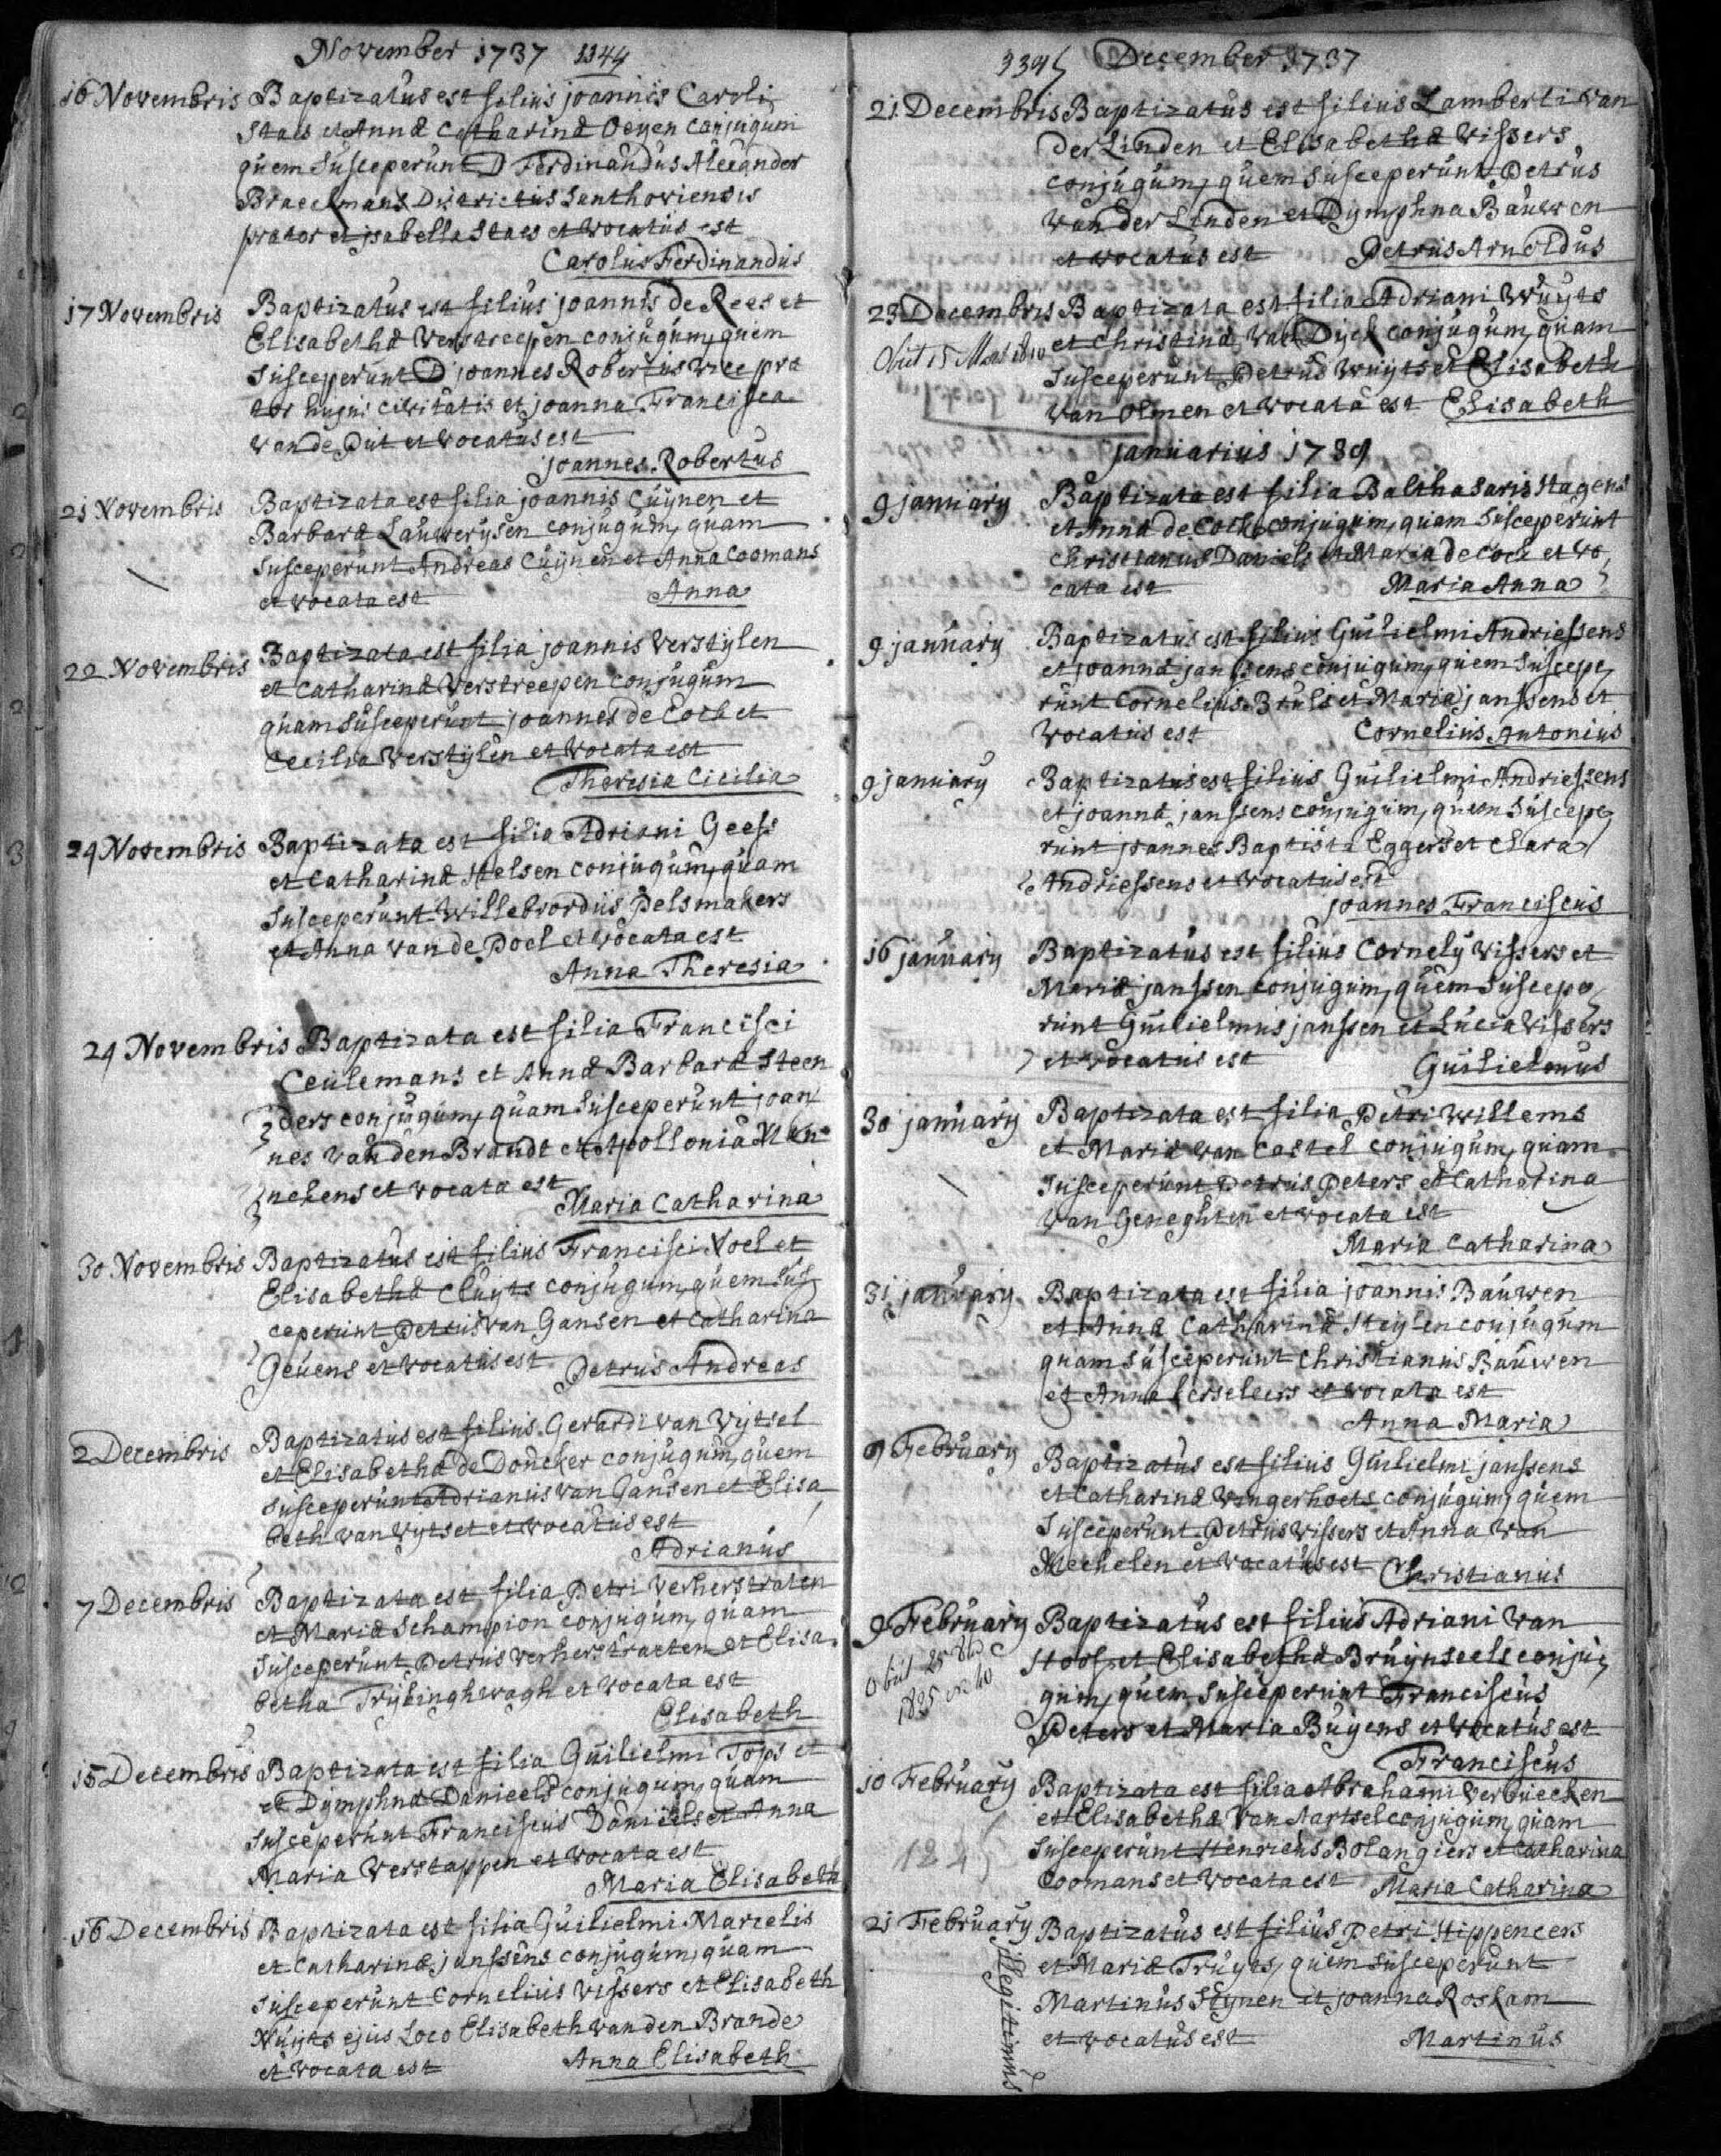 November 1737 1144
16 Novembris Baptizatus est filius joannis Caroli
Staes et Annæ Catharinæ Oeyen conjugum
quem susceperunt D Ferdinandus Alexander
Braeckmans Districtus Santhoviensis
prætor et jsabella Staes et vocatus est
Carolus Ferdinandus
17 Novembris Baptizatus est filius joannis de Rees et
Elisabethæ Verstreepen conjugum, quem
susceperunt D joannes Robertus vice præ
tor hujus civitatis et joanna Francisca
van de Put et vocatus est
joannes Robertus
21 Novembris Baptizata est filia joannis Cuÿnen et
Barbaræ Lauwerÿsen conjugum, quam
susceperunt Andreas Cuÿnen et Anna Coomans
et vocata est Anna
22 Novembris Baptizata est filia joannis Verstylen
et Catharinæ Verstreepen conjugum
quam susceperunt joannes de Cock et
Cecilia Verstylen et vocata est
Theresia Cicilia
24 Novembris Baptizata est filia Adriani Geess
et Catharinæ Stelsen conjugum, quam
susceperunt Willebrordus Pelsmakers
et Anna van de Poel et vocata est
Anna Theresia
24 Novembris Baptizata est filia Francisci
Ceulemans et Annæ Barbaræ Steen
ders conjugum, quam susceperunt joan
nes van den Brandt et Apollonia Men
nekens et vocata est
Maria Catharina
30 Novembris Baptizatus est filius Francisci Noel et
Elisabethæ Cluyts conjugum, quem sus
ceperunt Petrus van Gansen et Catharina
Geuens et vocatus est Petrus Andreas
2 Decembris Baptizatus est filius Gerardi van Vytsel
et Elisabethæ de Doncker conjugum, quem
susceperunt Adrianus van Gansen et Elisa
beth van Vytset et vocatus est
Adrianus
7 Decembris Baptizata est filia Petri Verherstraten
et Mariæ Schampion conjugum, quam
susceperunt Petrus Verherstraeten et Elisa
betha et vocata est
Elisabeth
15 Decembris Baptizata est filia Guilielmi Tops et
et Dymphnæ Danieels conjugum, quam
susceperunt Franciscus Daniels et Anna
Maria Verstappen et vocata est
Maria Elisabeth
16 Decembris Baptizata est filia Guilielmi Marcelis
et Catharinæ janssens conjugum, quam
susceperunt Cornelius Vissers et Elisabeth
Wuyts ejus Loco Elisabeth van den Brande
et vocata est Anna Elisabeth
December 1737
21 Decembris Baptizatus est filius Lamberti van
der Linden et Elisabethæ Vissers
conjugum, quem susceperunt Petrus
van der Linden et Dymphna Bauwen
et vocatus est Petrus Arnoldus
23 Decembris Baptizata est filia Adriani Wuyts
et Christinæ van Dyck conjugum, quam
Obiit 15 1810
susceperunt Petrus Wuyts et Elisabeth
van Olmen et vocata est Elisabeth
januarius 1738
9 januarij Baptizata est filia Balthasaris Stagens
et Annæ de Cock conjugum, quam susceperunt
Christianus Daniels et Maria de Cock et vo
cata est Maria Anna
9 januarij Baptizatus est filius Guilielmi Andriessens
et joannæ janssens conjugum, quem suscepe
runt Cornelius Bruls et Maria janssens et
vocatus est Cornelius Antonius
9 januarij Baptizatus est filius Guilielmi Andriessens
et joannæ janssens conjugum, quem suscepe
runt joannes Baptista Eggers et Clara
Andriessens et vocatus est
joannes Franciscus
16 januarij Baptizatus est filius Cornelÿ Vissers et
Mariæ janssen conjugum, quem suscepe
runt Guilielmus janssen et Lucia Vissers
et vocatus est Guilielmus
30 januarij Baptizata est filia Petri Willems
et Mariæ van Castel conjugum, quam
susceperunt Petrus Peters et Catharina
van Geneghten et vocata est
Maria Catharina
31 januarij Baptizata est filia joannis Bauwen
et Annæ Catharinæ Steylen conjugum
quam susceperunt Christianus Bauwen
et Anna Kerseleers et vocata est
Anna Maria
9 Februarij Baptizatus est filius Guilielmi janssens
et Catharinæ Vingerhoets conjugum, quem
susceperunt Petrus Vissers et Anna van
Mechelen et vocatus est Christianus
9 Februarij Baptizatus est filius Adriani van
Stoof et Elisabethæ Bruynseels conju
obiit 25 1825
gum, quem susceperunt Franciscus
Peters et Maria Buyens et vocatus est
Franciscus
10 Februarij Baptizata est filia Abrahami Verbuecken
et Elisabethæ van Aartsel conjugum, quam
susceperunt Henricus Bolangiers et Catharina
Coomans et vocata est Maria Catharina
21 Februarij Baptizatus est filius Petri Hippencers
et Mariæ Truyts, quem susceperunt
Martinus Stynen et joanna Roskam
et vocatus est Martinus
illegitimus